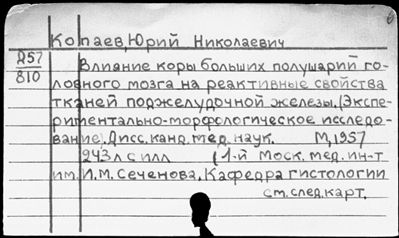 Копаев, Юрий Николаевич
Д57
810
Влияние коры больших полушарий го-
ловного мозга на реактивные свойства
тканей поджелудочной железы. (Экспе-
риментально-морфологическое исследо-
вание). Дисс. канд. мед. наук. М, 1957
243л с илл (1-й Моск. мед. ин-т
им. И.М. Сеченова. Кафедра гистологии
см. след. карт.